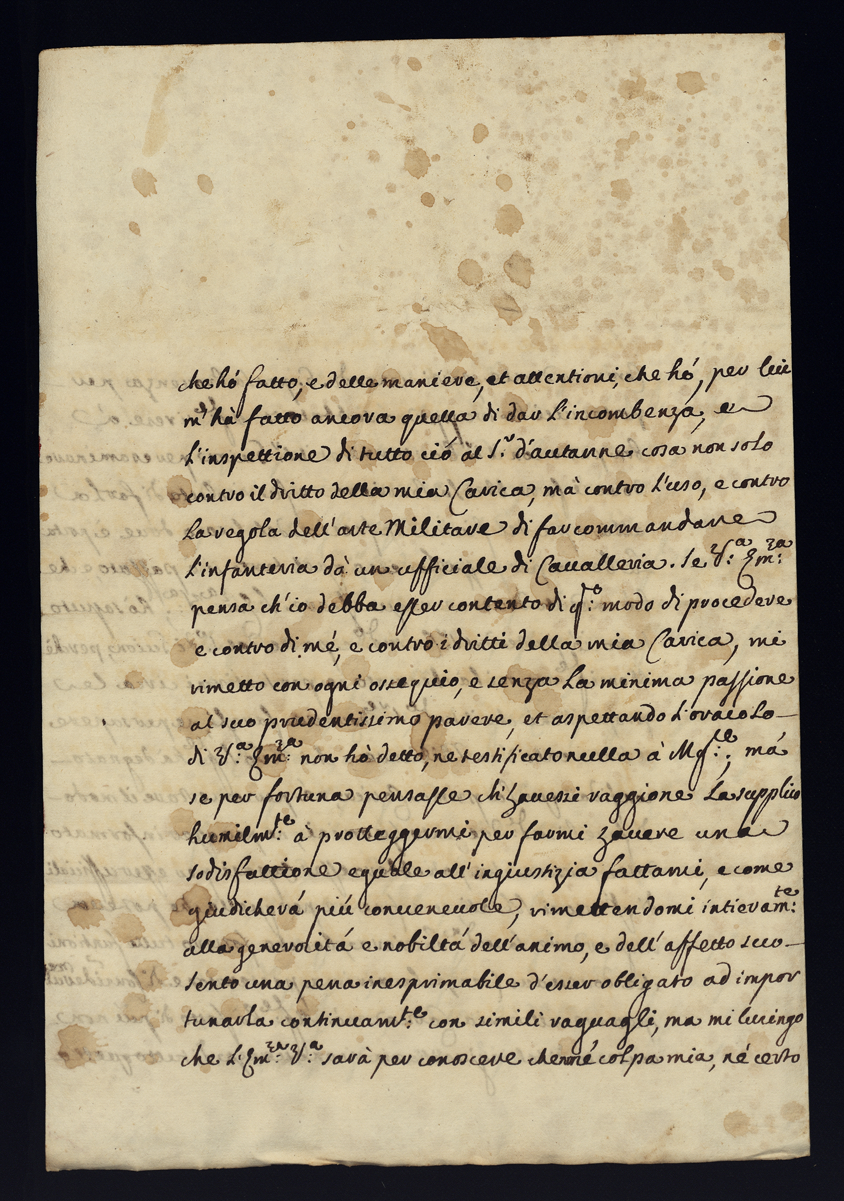 che hó fatto, e delle maniere, et attentioni, che hó, per lui
m'hà fatto ancora quella di dar L'incombenza, e
L'inspettione di tutto ciò àl S.r d'autanne cosa non solo
contro il dritto della mia Carica, mà contro L'uso, e contro
La regola dell'arte Militare di far commandare
L'infanteria dà un ufficiale di Cavalleria. Se V.a Em.za
pensa ch'io debba esser contento di q.o modo di procedere
e contro di mé, e contro i dritti della mia Carica, mi
rimetto con ogni ossequio, e senza La minima passione
al suo prudentissimo parere, et aspettando L'oracolo
di V.a Em.za non hò detto, ne testificato nulla à M; má
se per fortuna pensasse ch'havessi raggione La supplico
humilm.te à protteggermi per farmi havere una
sodisfattione eguale all'ingiustizia fattami, e come
giudicherá piú convenevole, rimettendomi intieram.te
alla generositá e nobiltá dell'animo, e dell'affetto suo
sento una pena inesprimabile d'esser obligato ad impor
tunarla continuam.te con simili raguagli, ma mi lusingo
che L'Em.za V.a sarà per conoscere che né colpa mia, né certo